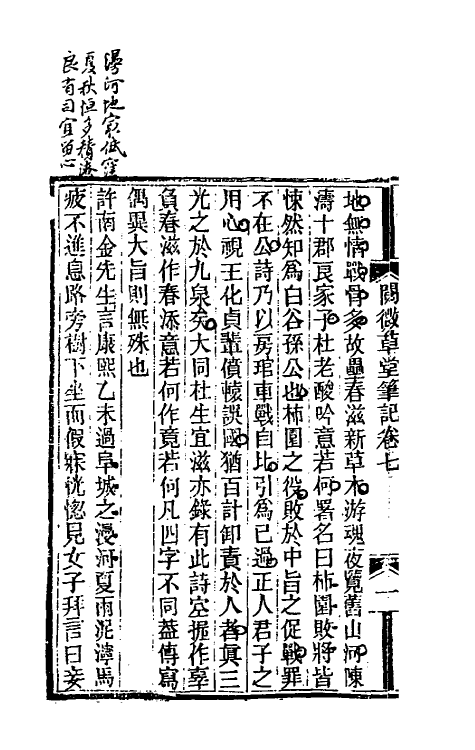 閱微草堂筆記卷七
一
地無情戰骨多故壘春滋新草木游魂夜覽舊山河陳
濤十郡良家子杜老酸吟意若何署名曰柿園敗將皆
悚然知爲白谷孫公也柿園之役敗於中旨之促戰罪
不在公詩乃以房琯車戰自比引爲己過正人君子之
用心視王化貞輩僨轅誤國猶百計卸責於人者眞三
光之於九泉矣大同杜生宜滋亦錄有此詩空握作辜
負春滋作春添意若何作竟若何凡四字不同蓋傳寫
偶異大旨則無殊也
許南金先生言康熙乙未過阜城之漫河夏雨泥濘馬
疲不進息路旁樹下坐而假寐恍惚見女子拜言曰妾
漫河地㝡低窪
夏秋恒多積潦
良有司宜留心